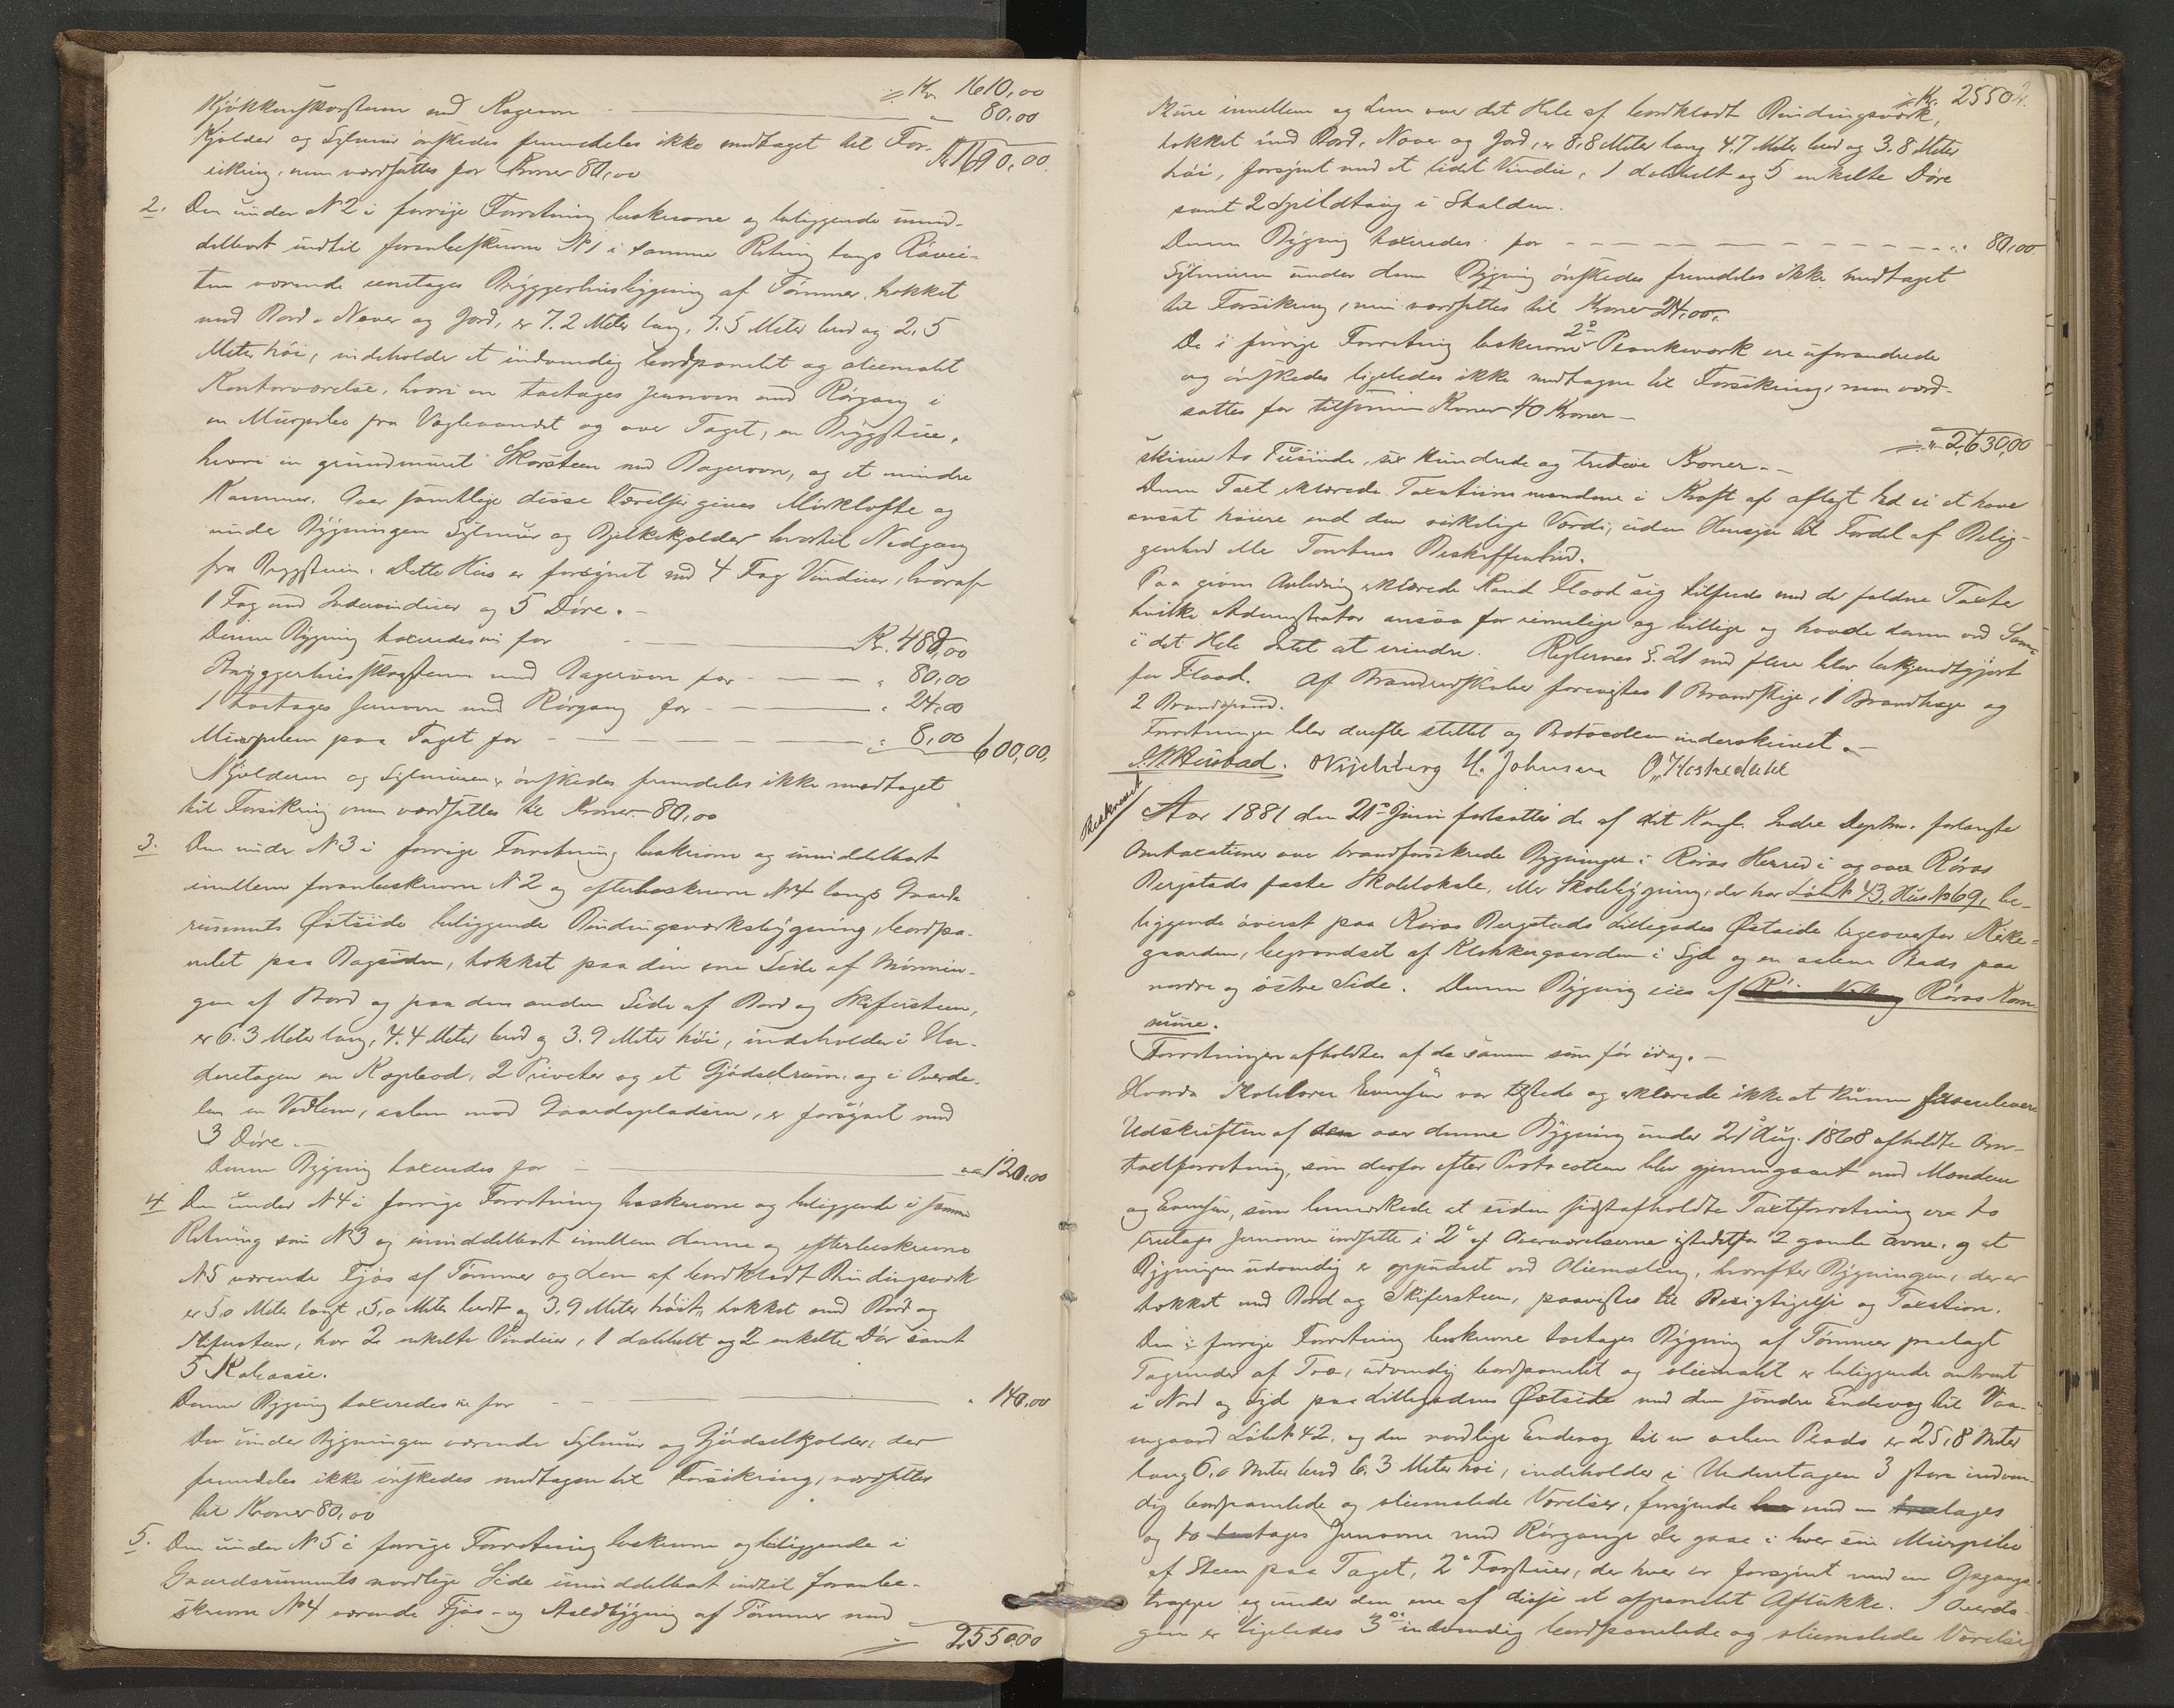 ÷ Kr 1610,00
Kjøkkenskorsteen med Bagerovn — " 80,00
Kr 1690,00.
Kjelder og Sylmuur ønskedes fremdeles ikke medtaget til For-
sikring, men værdsattes for Kroner 80,00
2. Den under N 2 i forrige Forretning beskrevne og beliggende umid-
delbart indtil foranbeskrevne N 1 i samme Retning langs
værende eenetages Bryggerhuusbygning af Tømmer, tækket
med Bord, Næver og Jord, er 7.2 Meter lang, 7.5 Meter bred og 2.5
Meter høi, indeholder et indvendig bordpanelet og oliemalet
Kontorværelse, hvori en toetages Jernovn med Rørgang i
en Muurpibe fra og over Taget, en Bryggstue,
hvori en grundmuret Skorsteen med Bagerovn, og et mindre
Kammer. Over samtlige disse Værelser gives Mørklofte og
under Bygningen Sylmuur og Bjelkekjelder hvortil Nedgang
fra Bryggstuen. Dette Huus er forsynet med 4 Fag Vinduer, hvoraf
1 Fag med Indervinduer og 5 Døre. —
Denne Bygning taxeredes for — Kr. 488,00
Bryggerhuusskorsteen med Bagerovn for — " 80,00
1 toetages Jernovn med Rørgang for — " 24,00
Muurpiben paa Taget for — " 8,00 600,00,
Kjelderen og Sylmuren ønskedes fremdeles ikke medtaget
til Forsikring men værdsattes til Kroner 80,00
3. Den under N 3 i forrige Forretning beskrevne og umiddelbart
imellem foranbeskrevne N 2 og efterbeskrevne N 4 langs Gaards-
rummets Østside beliggende Bindingsværksbygning, bordpa-
nelet paa Bagsiden, tækket paa den ene Side af Mønnin-
gen af Bord og paa den anden Side af Bord og Skifersteen,
er 6.3 Meter lang, 4.4 Meter bred og 3.9 Meter høi, indeholder i Un-
deretagen en Kopbod, 2 Priveter og et Gjødselrum, og i Overde-
len en Vedlem, aaben mod Gaardspladsen, er forsynet med
3 Døre. —
Denne Bygning taxeredes for — 120,00
4 Den under N 4 i forrige Forretning beskrevne og beliggende i samme
Retning som N 3 og umiddelbart imellem denne og efterbeskrevne
N 5 værende Fjøs af Tømmer og Lem af bordklædt Bindingsværk
er 5.0 Meter langt, 5,0 Meter bredt og 3.9 Meter høit, tækket med Bord og
Skifersteen, har 2 enkelte Vinduer, 1 dobbelt og 2 enkelte Dør samt
5 Kobaase.
Denne Bygning taxeredes for — " 140,00
Den under Bygningen værende Sylmuur og Gjødselkjelder, der
fremdeles ikke ønskedes medtagen til Forsikring, værdsattes
til Kroner 80,00
5. Den under N 5 i forrige Forretning beskrevne og beliggende i
Gaardsrummets nordlige Side umiddelbart indtil foranbe-
skrevne N 4 værende Fjøs- og Staldbygning af Tømmer med
÷ 2550.00
÷ Kr. 2550
Mure imellem og Lem over det Hele af bordklædt Bindingsværk,
tækket med Bord, Næver og Jord, er 8,8 Meter lang 4.7 Meter bred og 3.8 Meter
høi, forsynt med et lidet Vindue, 1 dobbelt og 5 enkelte Døre
samt 2 Spildtoug i Stalden.
Denne Bygning taxeredes for — 80,00
Sylmuren under denne Bygning ønskedes fremdeles ikke medtaget
til Forsikring, men værdsattes til Kroner 24,00.
De i forrige Forretning beskrevne 2de Plankeværk ere uforandrede
og ønskedes ligeledes ikke medtagne til Forsikring, men værd-
sattes for tilsammen Kroner 40 Kroner —
÷ " 2,630,00
skriver to Tusinde, sex Hundrede og tredive Kroner. —
Denne Taxt erklærede Taxationsmændene i Kraft af aflagt Ed ei at have
ansat høiere end den virkelige Værdi, uden Hensyn til Fordel af Belig-
genhed eller Tomtens Beskaffenhed.
Paa given Anledning erklærede Rand Flood sig tilfreds med de faldne Taxter
hvilke Administrator ansaa for rimelige og billige og havde denne ved Sam-
i det Hele Intet at erindre. Reglernes §. 21 med flere blev bekjendtgjort
for Flood. Af Brandredskaber forevistes 1 Brandstige, 1 Brandhage og
2 Brandspand.
Forretningen blev derefter sluttet og Protocollen underskrevet. —
H. Johnsen
Beskrevet
Aar 1881 den 21de Juni fortsattes de af det Kongl. Indre Deptm. forlangte
Omtaxationer over brandforsikrede Bygninger i Røros Herred i og over Røros
Bergstads faste Skolelokale, eller Skolebygning, der har Løbe N 43, Huus N 69, be-
liggende øverst paa Røros Bergstads Lillegades Østside ligeoverfor Kirke-
gaarden, begrændset af Klokkergaarden i Syd og en aaben Plads paa
nordre og østre Side. Denne Bygning eies af Røros Kom-
mune.
Forretningen afholdtes af de samme som før idag. —
Hvorda Skolelærer Evensen var tilstede og erklærede ikke at kunne
Udskriften af den over denne Bygning under 21 Aug. 1868 afholdte Om-
taxtforretning, som derfor efter Protocollen blev gjennemgaaet med Mændene
og Evensen, som bemærkede at siden sidstafholdte Taxtforretning ere to
treetages Jernovne indsatte i 2de af Overværelserne istedetfor 2 gamle Ovne, og at
Bygningen udvendig er oppudset ved Oliemaling, hvorefter Bygningen, der er
tækket med Bord og Skifersteen, paavistes til Besigtigelse og Taxation.
Den i forrige Forretning beskrevne toetages Bygning af Tømmer paalagt
Tagrender af Træ, udvendig bordpanelet og oliemalet er beliggende omtrent
i Nord og Syd paa Lillegadens Østside med den søndre Endevæg til
Løbe N 42. og den nordlige Endevæg til en aaben Plads er 25,8 Meter
lang 6,0 Meter bred 6.3 Meter høi, indeholder i Underetagen 3 store indven-
dig bordpanelede og oliemalede Værelser, forsynede med en etages
og to etages Jernovne med Rørgange der gaae i hver sin Muurpibe
af Steen paa Taget, 2de Forstuer, der hver er forsynt med en Opgangs-
trappe og under den ene af disse et afpanelet Aflukke. I Overeta-
gen er ligeledes 3de indvendig bordpanelede og oliemalede Værelser